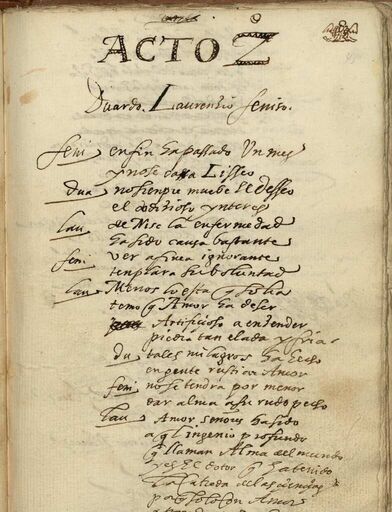 ACTO 2
Duardo. Laurenzio feniso.
feni en fin ha passado Un mes
y no se casa Lisseo
dua no sienpre muebe El desseo
el codizioso ynteres
lau de Nise la enfermedad
ha sido causa bastante
feni ver a finea ignorante
templara su boluntad
lau Menos lo esta q solia
temo q Amor ha de ser
Artifiçioso a enzender
piedra tan elada y fria
du tales milagros ha hecho
en gente rustica Amor
feni no se tendra por menor
dar alma a su rudo pecho
lau Amor senores ha sido
aql ingenio profundo
q llaman Alma del mundo
y es El dotor q ha tenido
la catreda de las ciencias
porq solo con Amor